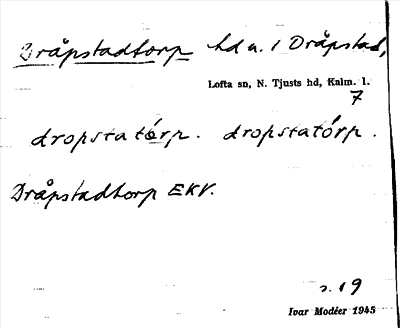 Dråpstadtorp hd u. 1 Dråpstad,
Lofta sn, N. Tjusts hd, Kalm. l.
7
dropstatórp. dropstatórp.
Dråpstadtorp EKV.
s. 19
Ivar Modéer 1945